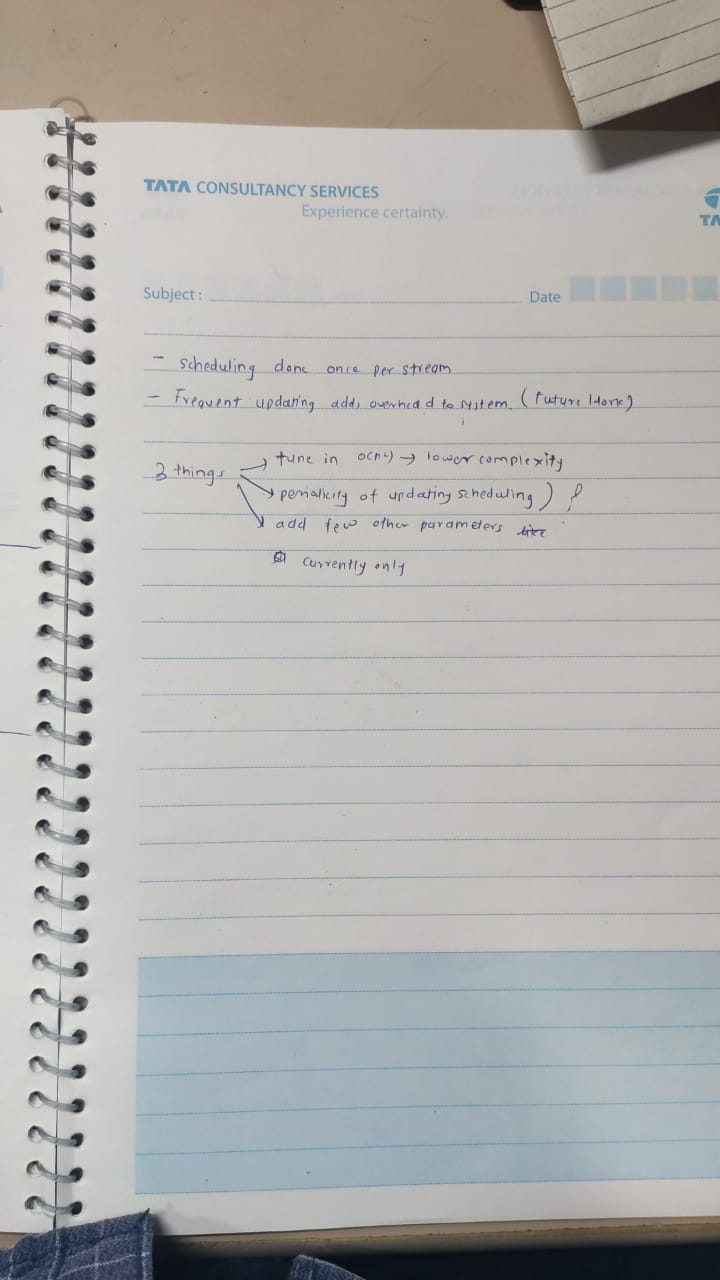 TATA CONSULTANCY SERVICES
Experience certainty.
TA
Subject :
Date
- Scheduling done once per stream
- Frequent updating adds overhead to system. (Future Work)
3 things → tune in O(n4) → lower complexity
→ periodicity of updating scheduling)
→ add few other parameters like
currently only